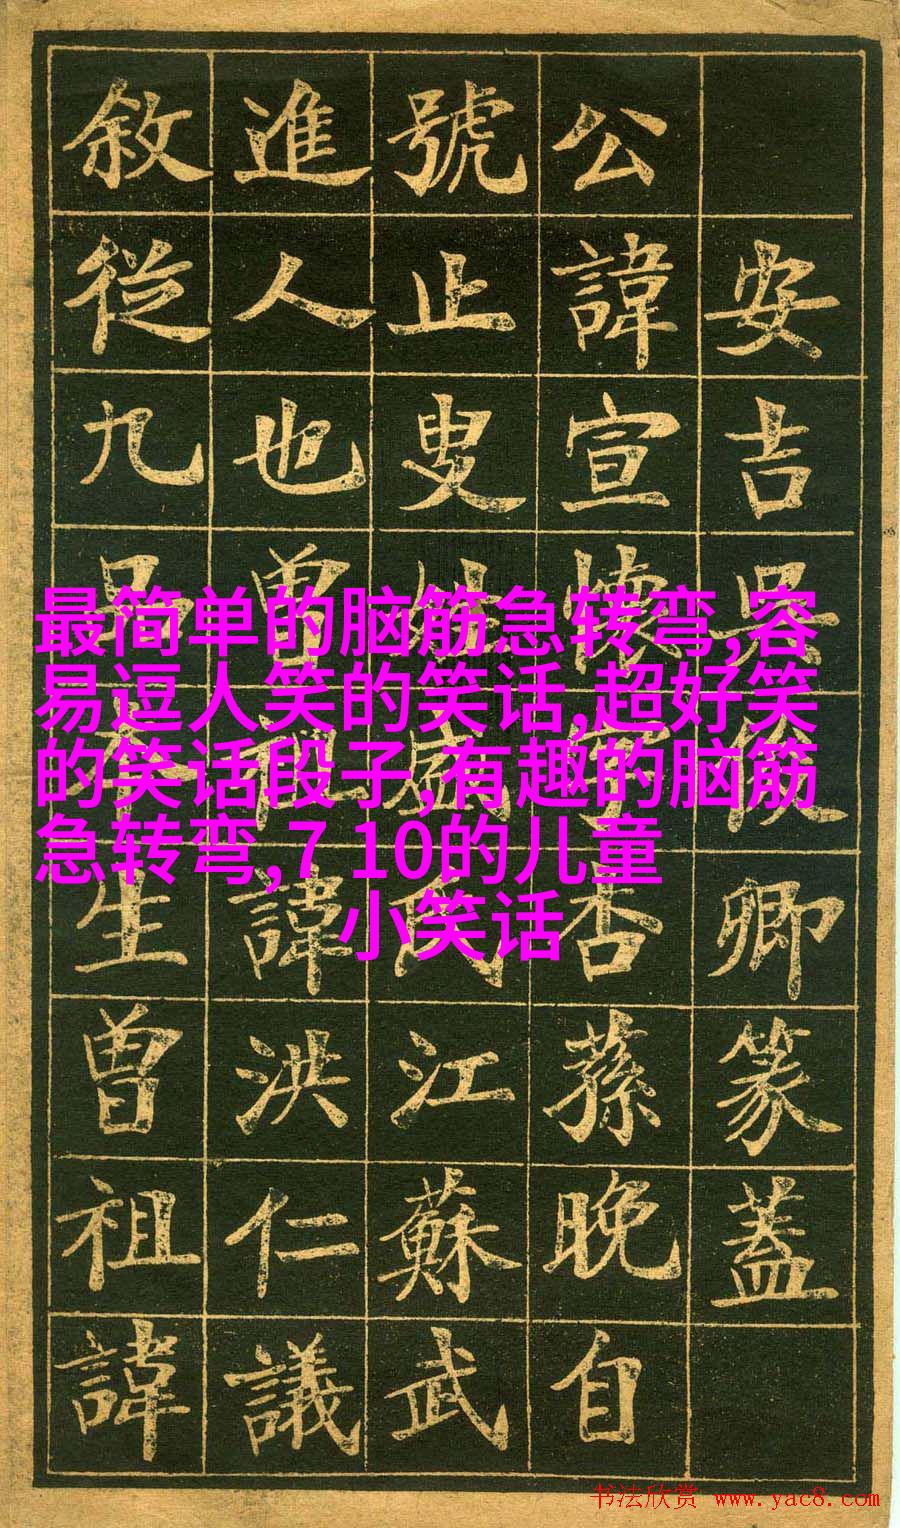 安吉吳俊卿篆蓋
公諱宣懷字杏蓀晚自
號止叟姓盛氏江蘇武
進人也曾祖諱洪仁議
敘從九品生曾祖諱
最简单的脑筋急转弯,容
易逗人笑的笑话,超好笑
的笑话段子,有趣的脑筋
急转弯,7 10的儿童
小笑话
书法欣赏 www.yac8.com